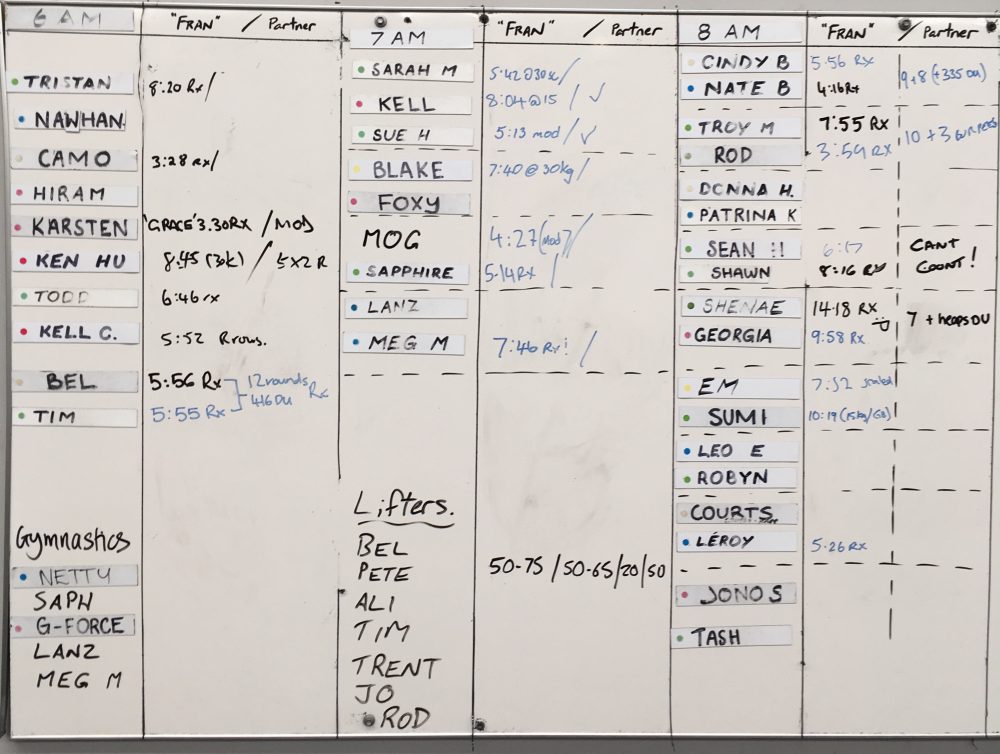 6 AM "FRAN" / Partner
TRISTAN 8:20 Rx/
NAWHAN
CAMO 3:28 rx/
HIRAM
KARSTEN 'GRACE' 3.30RX / MOD
KEN HU 8.45 (30k) / 5x2 R
TODD 6:46 rx
KELL C. 5:52
BEL 5:56 Rx 12 rounds
TIM 5:55 Rx 416 DU Rx
Gymnastics
NETTY
SAPH
G-FORCE
LANZ
MEG M
7 AM "FRAN" / Partner
SARAH M 5:42 @30k/
KELL 8:04 @15 / ✓
SUE H 5:13 mod / ✓
BLAKE 7:40 @ 30kg /
FOXY
MOG 4:27 (mod) /
SAPPHIRE 5.14RX /
LANZ
MEG M 7:46 Rx! /
Lifters.
BEL
PETE 50-75 / 50-65/20/50
ALI
TIM
TRENT
JO
ROD
8 AM "FRAN" / Partner
CINDY B 5:56 Rx 9+8 (+335 DU)
NATE B 4:16 Rx
TROY M 7:55 RX 10 + 3 BURPEES
ROD 3:59 RX
DONNA H.
PATRINA K
SEAN H 6:17 CANT
SHAWN 8:16 RX COUNT!
SHENAE 14:18 RX 7 + heaps DU
GEORGIA 9:58 Rx
EM 7:52 scaled
SUMI 10:19 (15kg/GB)
LEO E
ROBYN
COURTS
LEROY 5.26 RX
JONO S
TASH